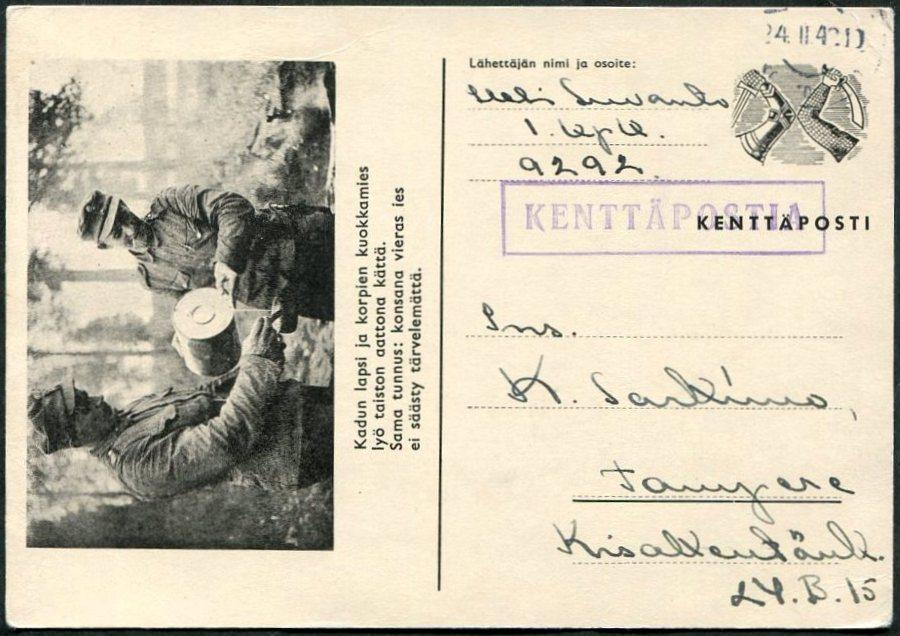 Kadun lapsi ja korpien kuokkamies
lyö taiston aattona kättä.
Sama tunnus: konsana vieras ies
ei säästy tärvelemättä.
Lähettäjän nimi ja osoite:
1. Kpk.
9292
KENTTÄPOSTIA
KENTTÄPOSTI
Ins.
K. Sarkimo,
Tampere
Kisakentänk.
24.B.15